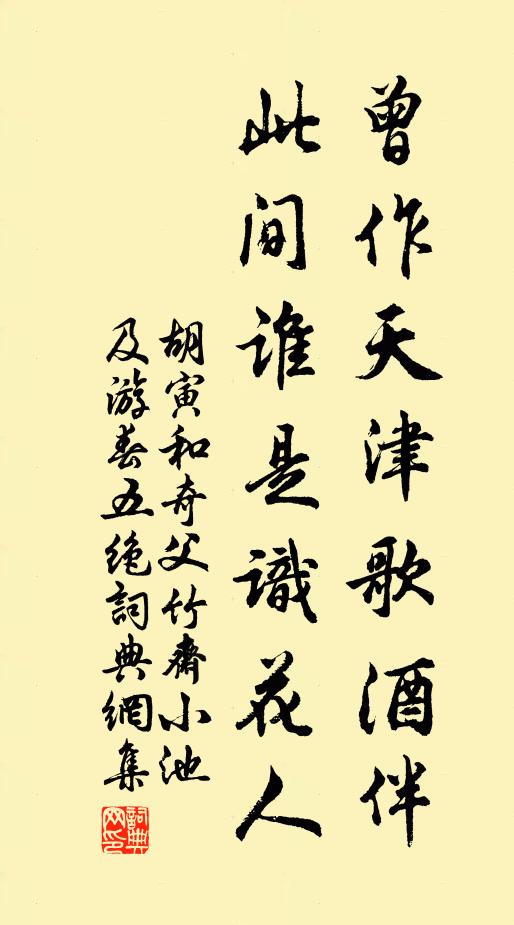 曾作天津歌酒伴
此间谁是識花人
胡寅和奇父竹齋小池
及游春五绝詞典網集
詞典
网印